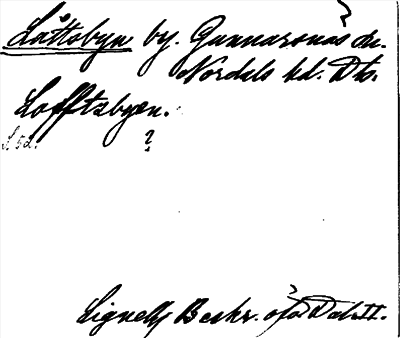 Låttsbyn by. Gunnarsnäs sn.
Nordals hd. Ds.
Lofftsbyen.
S. 52. ?
Lignell, Beskr. öfv. Dalsl.